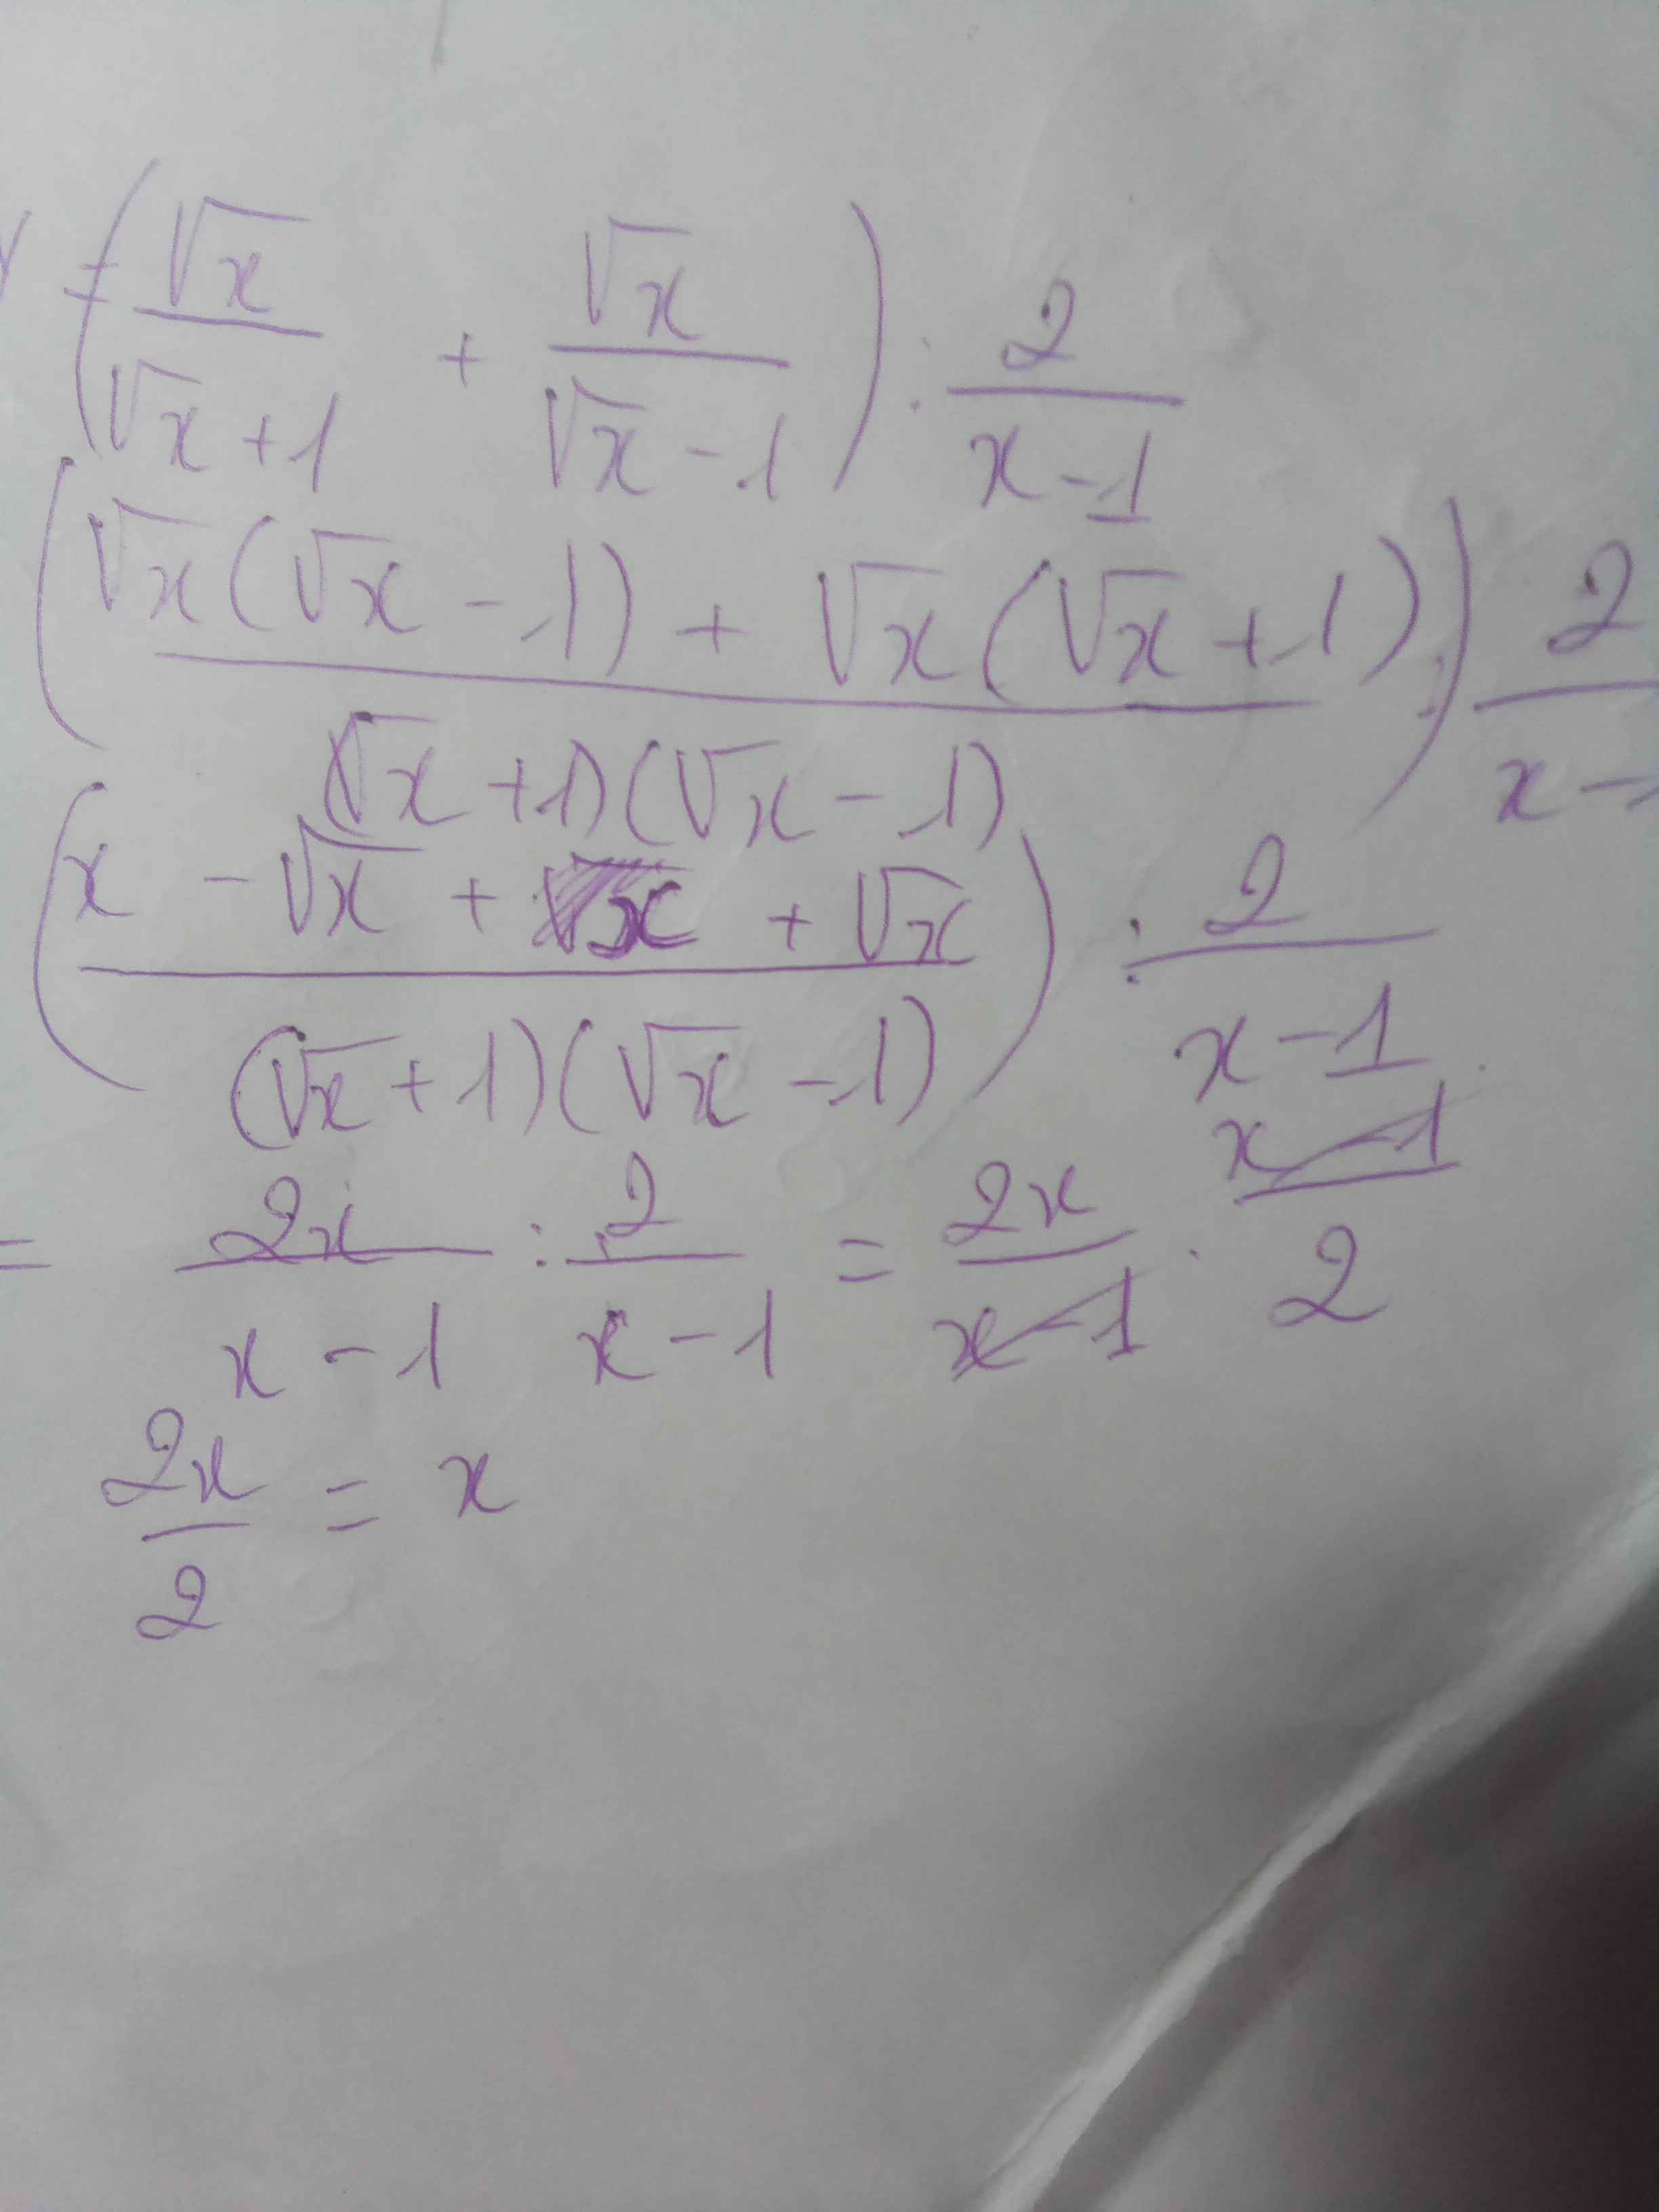 = (√x/(√x + 1) + √x/(√x - 1)) : 2/(x - 1)
((√x(√x - 1) + √x(√x + 1))/(√x + 1)(√x - 1)) : 2/(x -
((x - √x + x + √x)/((√x + 1)(√x - 1))) : 2/(x - 1)
= 2x/(x - 1) : 2/(x - 1) = 2x/(x - 1) . (x - 1)/2
2x/2 = x